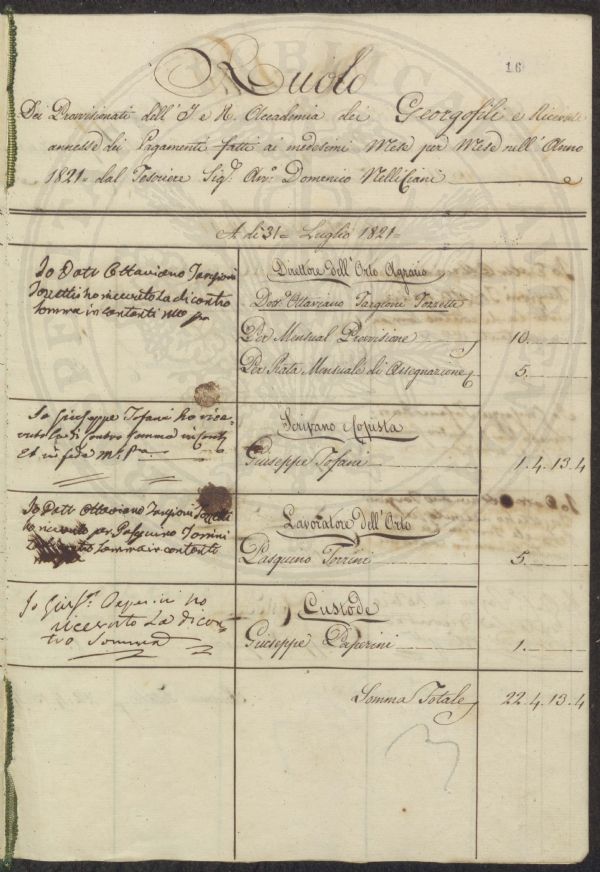 16
Ruolo
Dei Provisionati dell' I e R. Accademia dei Georgofili e Ricevute
annesse dei Pagamenti fatti ai medesimi Mese per Mese nell' Anno
1821= dal Tesoriere Sigr. Avo. Domenico Nelli Ciani
A di 31= Luglio 1821=
Io Dott Ottaviano Targioni
Tozzetti ho ricevuto la di contro
somma in contanti mo pa
Direttore dell' Orto Agrario
Dotto. Ottaviano Targioni Tozzetti
Per Mensual Provisione 10.
Per Rata Mensuale di Assegnazione 5.
Io Giuseppe Tofani ho rice-
vuto la di contro somma in Conti
et in fede Mo. Pa
Scrivano e Copista
Giuseppe Tofani 1.4.13.4
Io Dott Ottaviano Targioni Tozzetti
ho ricevuto per Pasquino Torrini
la di contro somma in contanti
Lavoratore dell' Orto
Pasquino Torrini 5.
Io Giusე. Paperini ho
ricevuto La di con-
tro Somma
Custode
Giuseppe Paperini 1.
Somma Totale 22.4.13.4